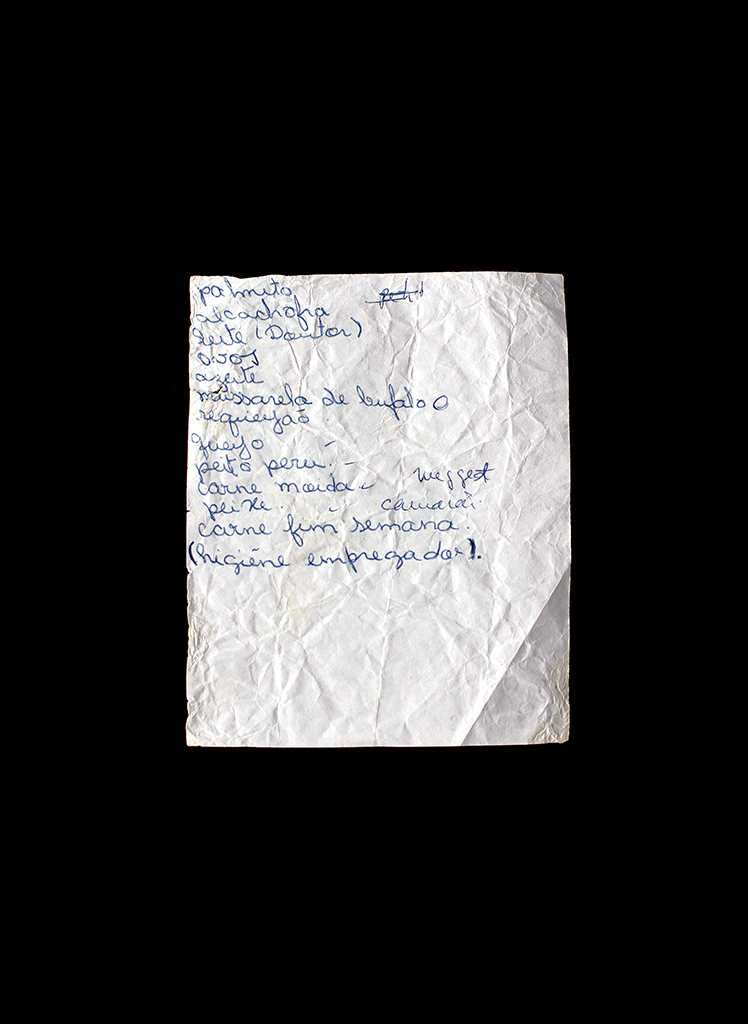 palmito
alcachofra
leite (Doutor)
ovos
azeite
mussarela de bufalo
requeijão
queijo -
peito peru. -
carne moida - neggest
peixe. camarai.
carne fim semana.
(higiene empregador).